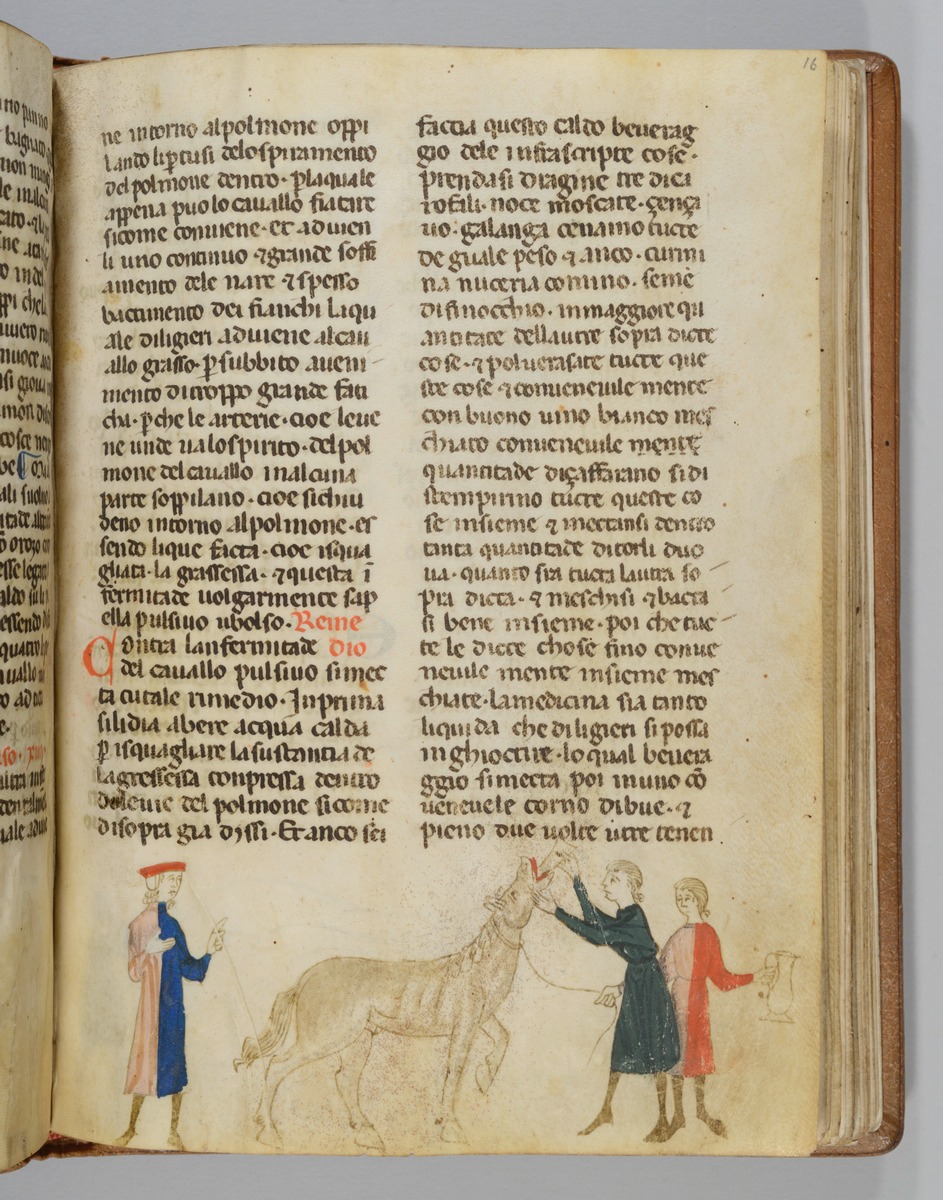 16
ne intorno alpolmone oppi
lando lipertusi delo spiramento
del polmone dentro· plaquale
appena puo lo cauallo fiatare
sicome conuiene· et aduien
li uno continuo ⁊ grande soffi
amento dele nare ⁊ spesso
battimento dei fianchi liqu
ale diligieri aduiene alcau
allo grasso· p subbito aueni
mento ditroppo grande fati
cha· pche le arterie· cioe leue
ne unde ua lo spirito· del pol
mone del cauallo in alcuna
parte soppilano· cioe sichiu
deno intorno alpolmone· es
sendo lique facta· cioe isqua
gliata· la grassessa· ⁊ questa ī
fermitade uolgarmente sap
ella pulsiuo ubolso· Reme
Contra lanfermitade dio
del cauallo pulsiuo si mec
ta cutale rimedio· In prima
silidia abere acqua calda
p isquagliare la sustantia de
la gressessa conpressa dentro
dele uie del polmone sicome
disopra gia dissi· Et anco sei
faccia questo caldo beuerag
gio dele infrascripte cose·
prendasi dragme tre dica
rofali· noce moscate· çença
uo· galanga cenamo tucte
de guale peso ⁊ anco· curmi
na nuceria comino· seme
di finocchio· in maggiore qu
antitate dellautre sopra dicte
cose· ⁊ poluerasate tucte que
ste cose ⁊ conueneuile mente
con buono uino bianco mes
chiato conueneuile mente
quantitade diçaffarano si di
stempirino tucte queste co
se insieme ⁊ mectansi dentro
tanta quantitade ditorli duo
ua· quanto sia tucta lautra so
pra dicta· ⁊ meschisi ⁊ bacta
si bene insieme· poi che tuc
te le dicte chose sino conue
neuile mente insieme mes
chiate· la medicina sia tanto
liquida che diligieri si possa
inghioctire· lo qual beuera
ggio si mecta poi in uno cō
ueneuele corno dibue· ⁊
pieno due uolte utre tenen